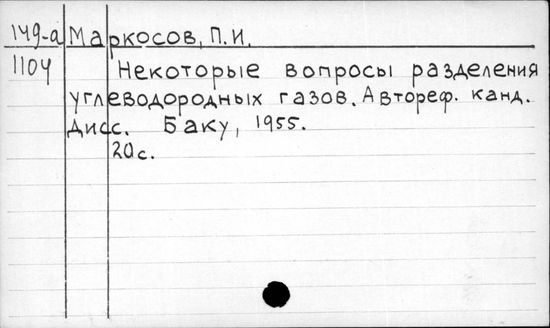 149-а Маркосов, П.И.
1104 Некоторые вопросы разделения
углеводородных газов. Автореф. канд.
Дисс. Баку, 1955.
20с.